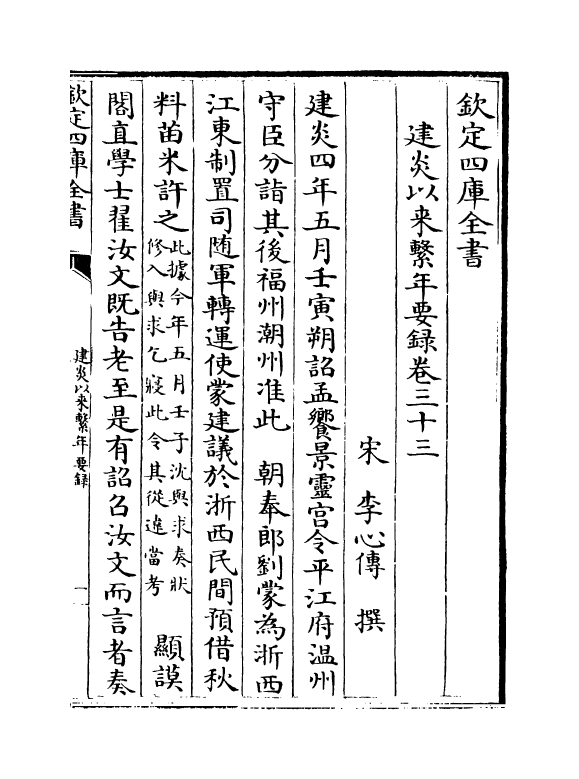 欽定四庫全書
建炎以来繫年要録卷三十三
宋 李心傳 撰
建炎四年五月壬寅朔詔孟饗景靈宫令平江府温州
守臣分詣其後福州潮州准此 朝奉郎劉蒙為浙西
江東制置司随軍轉運使蒙建議於浙西民間預借秋
料苗米許之此據今年五月壬子沈與求奏狀修入與求乞寢此令其從違當考 顯謨
閣直學士翟汝文既告老至是有詔召汝文而言者奏
欽定四庫全書
建炎以来繫年要録
一